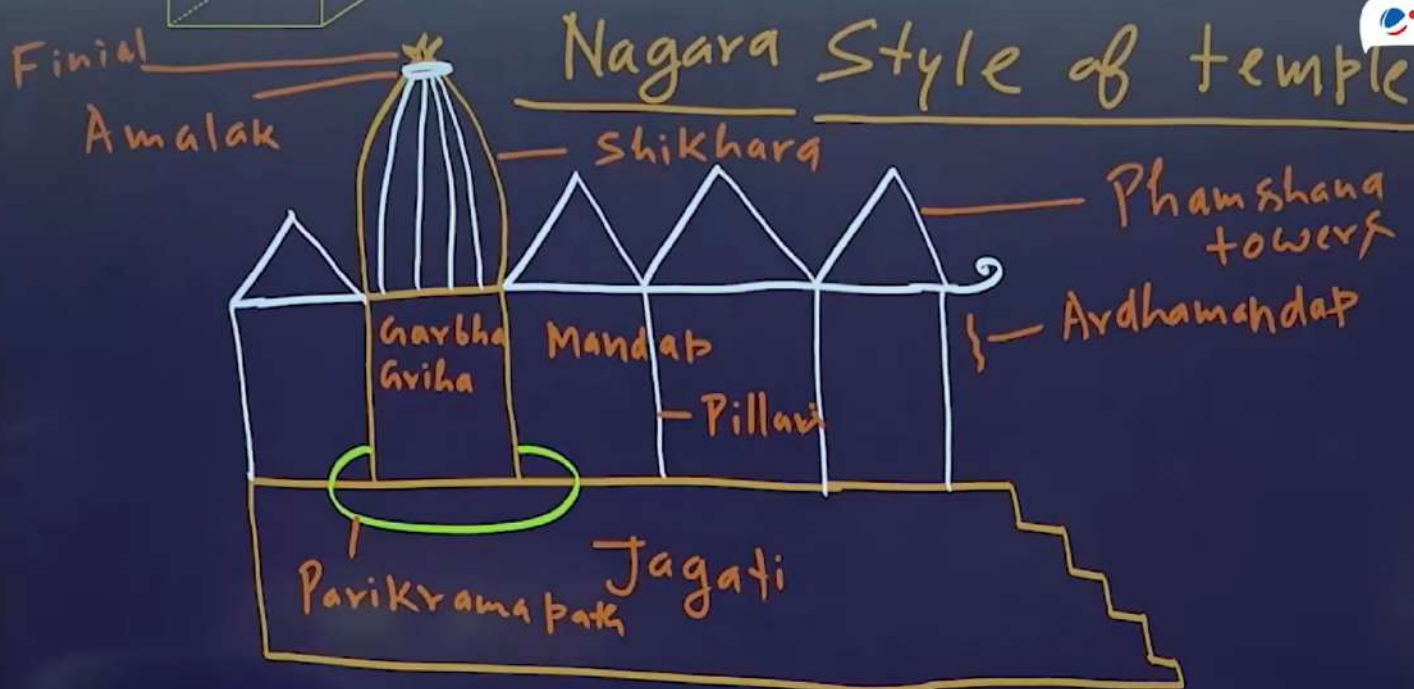 Nagara Style of temple
Finial
Amalak
Shikhara
Phamshana
towers
Ardhamandap
Garbha
Griha
Mandap
Pillar
Jagati
Parikrama path